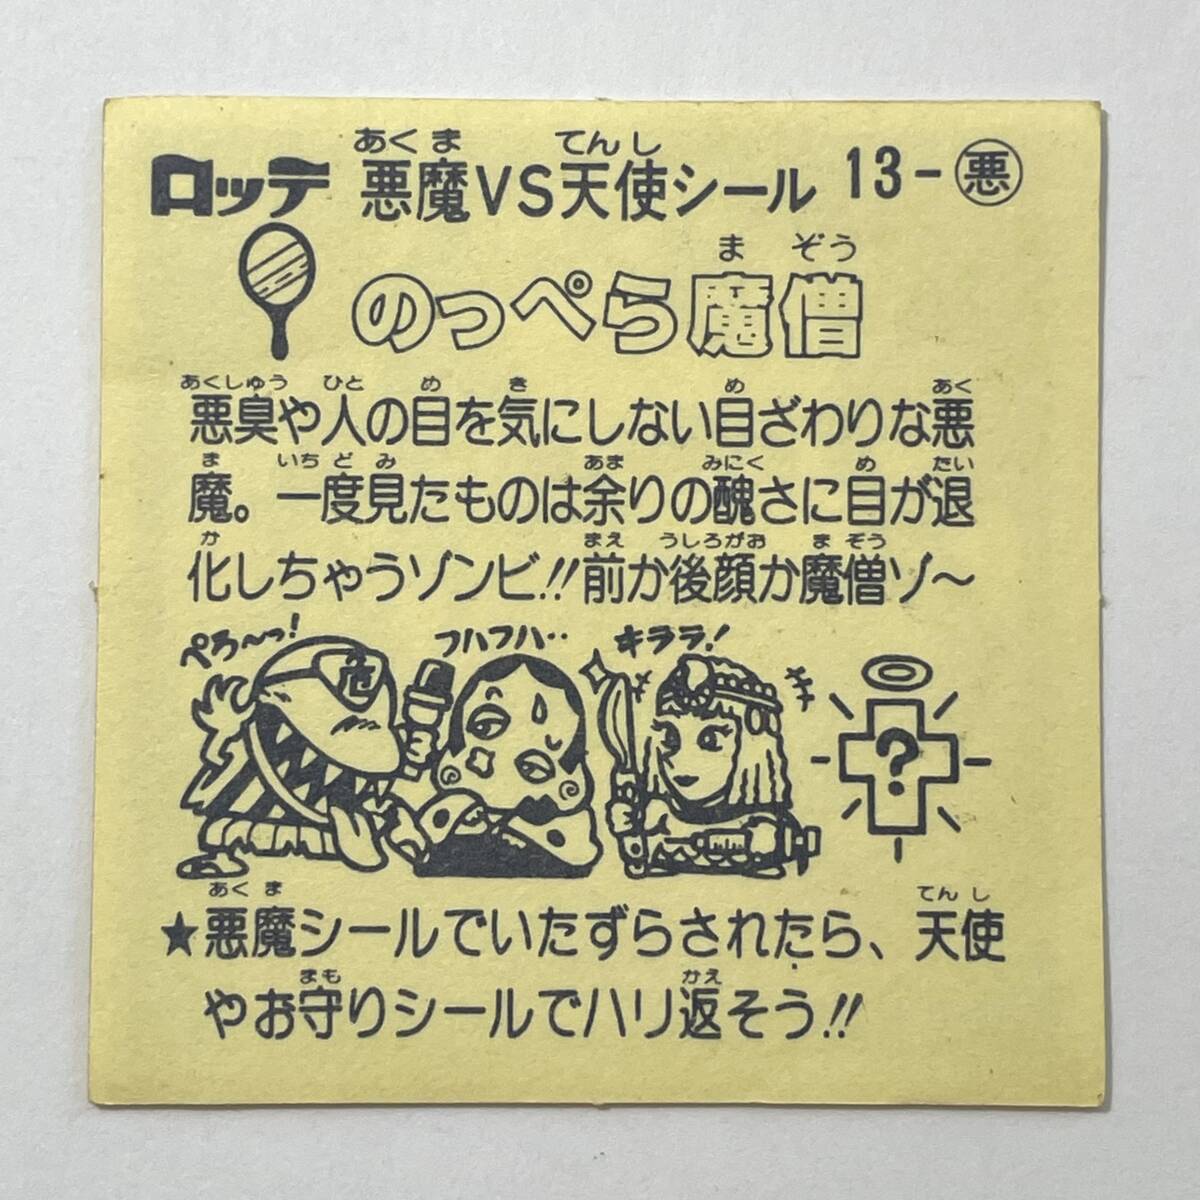 ロッテ 悪魔VS天使シール 13-悪
のっぺら魔僧
悪臭や人の目を気にしない目ざわりな悪
魔。一度見たものは余りの醜さに目が退
化しちゃうゾンビ!!前か後顔か魔僧ゾ〜
ぺろ〜っ! フハフハ‥ キララ!
危
?
★悪魔シールでいたずらされたら、天使
やお守りシールでハリ返そう!!